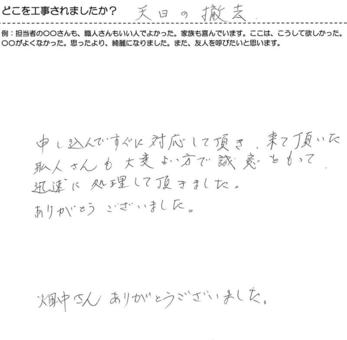 どこを工事されましたか? 天日の撤去.
例:担当者の〇〇さんも、職人さんもいい人でよかった。家族も喜んでいます。ここは、こうして欲しかった。
〇〇がよくなかった。思ったより、綺麗になりました。また、友人を呼びたいと思います。
申し込んですぐに対応して頂き、来て頂いた
職人さんも大変よい方で誠意をもって
迅速に処理して頂きました。
ありがとうございました。
畑中さんありがとうございました。